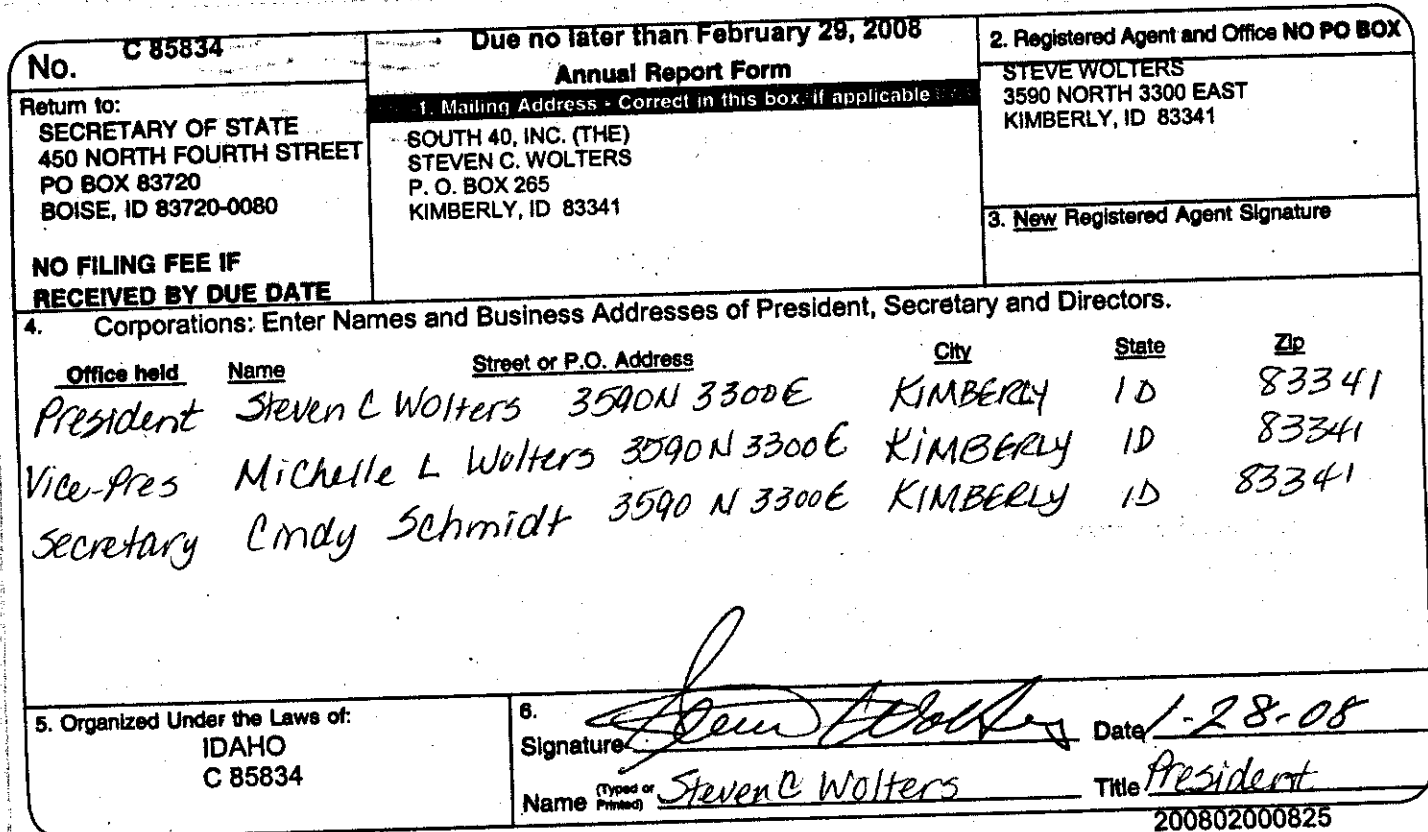 No. C 85834
Return to:
SECRETARY OF STATE
450 NORTH FOURTH STREET
PO BOX 83720
BOISE, ID 83720-0080
NO FILING FEE IF
RECEIVED BY DUE DATE
Due no later than February 29, 2008
Annual Report Form
1. Mailing Address - Correct in this box, if applicable
SOUTH 40, INC. (THE)
STEVEN C. WOLTERS
P. O. BOX 265
KIMBERLY, ID 83341
2. Registered Agent and Office NO PO BOX
STEVE WOLTERS
3590 NORTH 3300 EAST
KIMBERLY, ID 83341
3. New Registered Agent Signature
4. Corporations: Enter Names and Business Addresses of President, Secretary and Directors.
Office held Name Street or P.O. Address City State Zip
President Steven C Wolters 3590N 3300E KIMBERLY ID 83341
Vice-Pres Michelle L Wolters 3590 N 3300E KIMBERLY ID 83341
Secretary Cindy Schmidt 3590 N 3300E KIMBERLY ID 83341
5. Organized Under the Laws of:
IDAHO
C 85834
6.
Signature Steven C Wolters Date 1-28-08
Name (Typed or Printed) Steven C Wolters Title President
200802000825